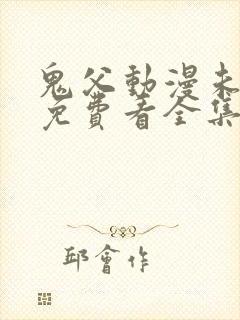 鬼父動漫未
免費看全集
邱會作